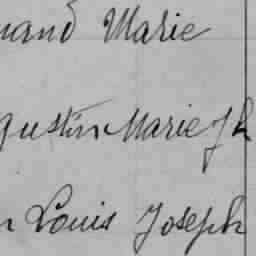 nand Marie
gustin Marie Jh
n Louis Joseph